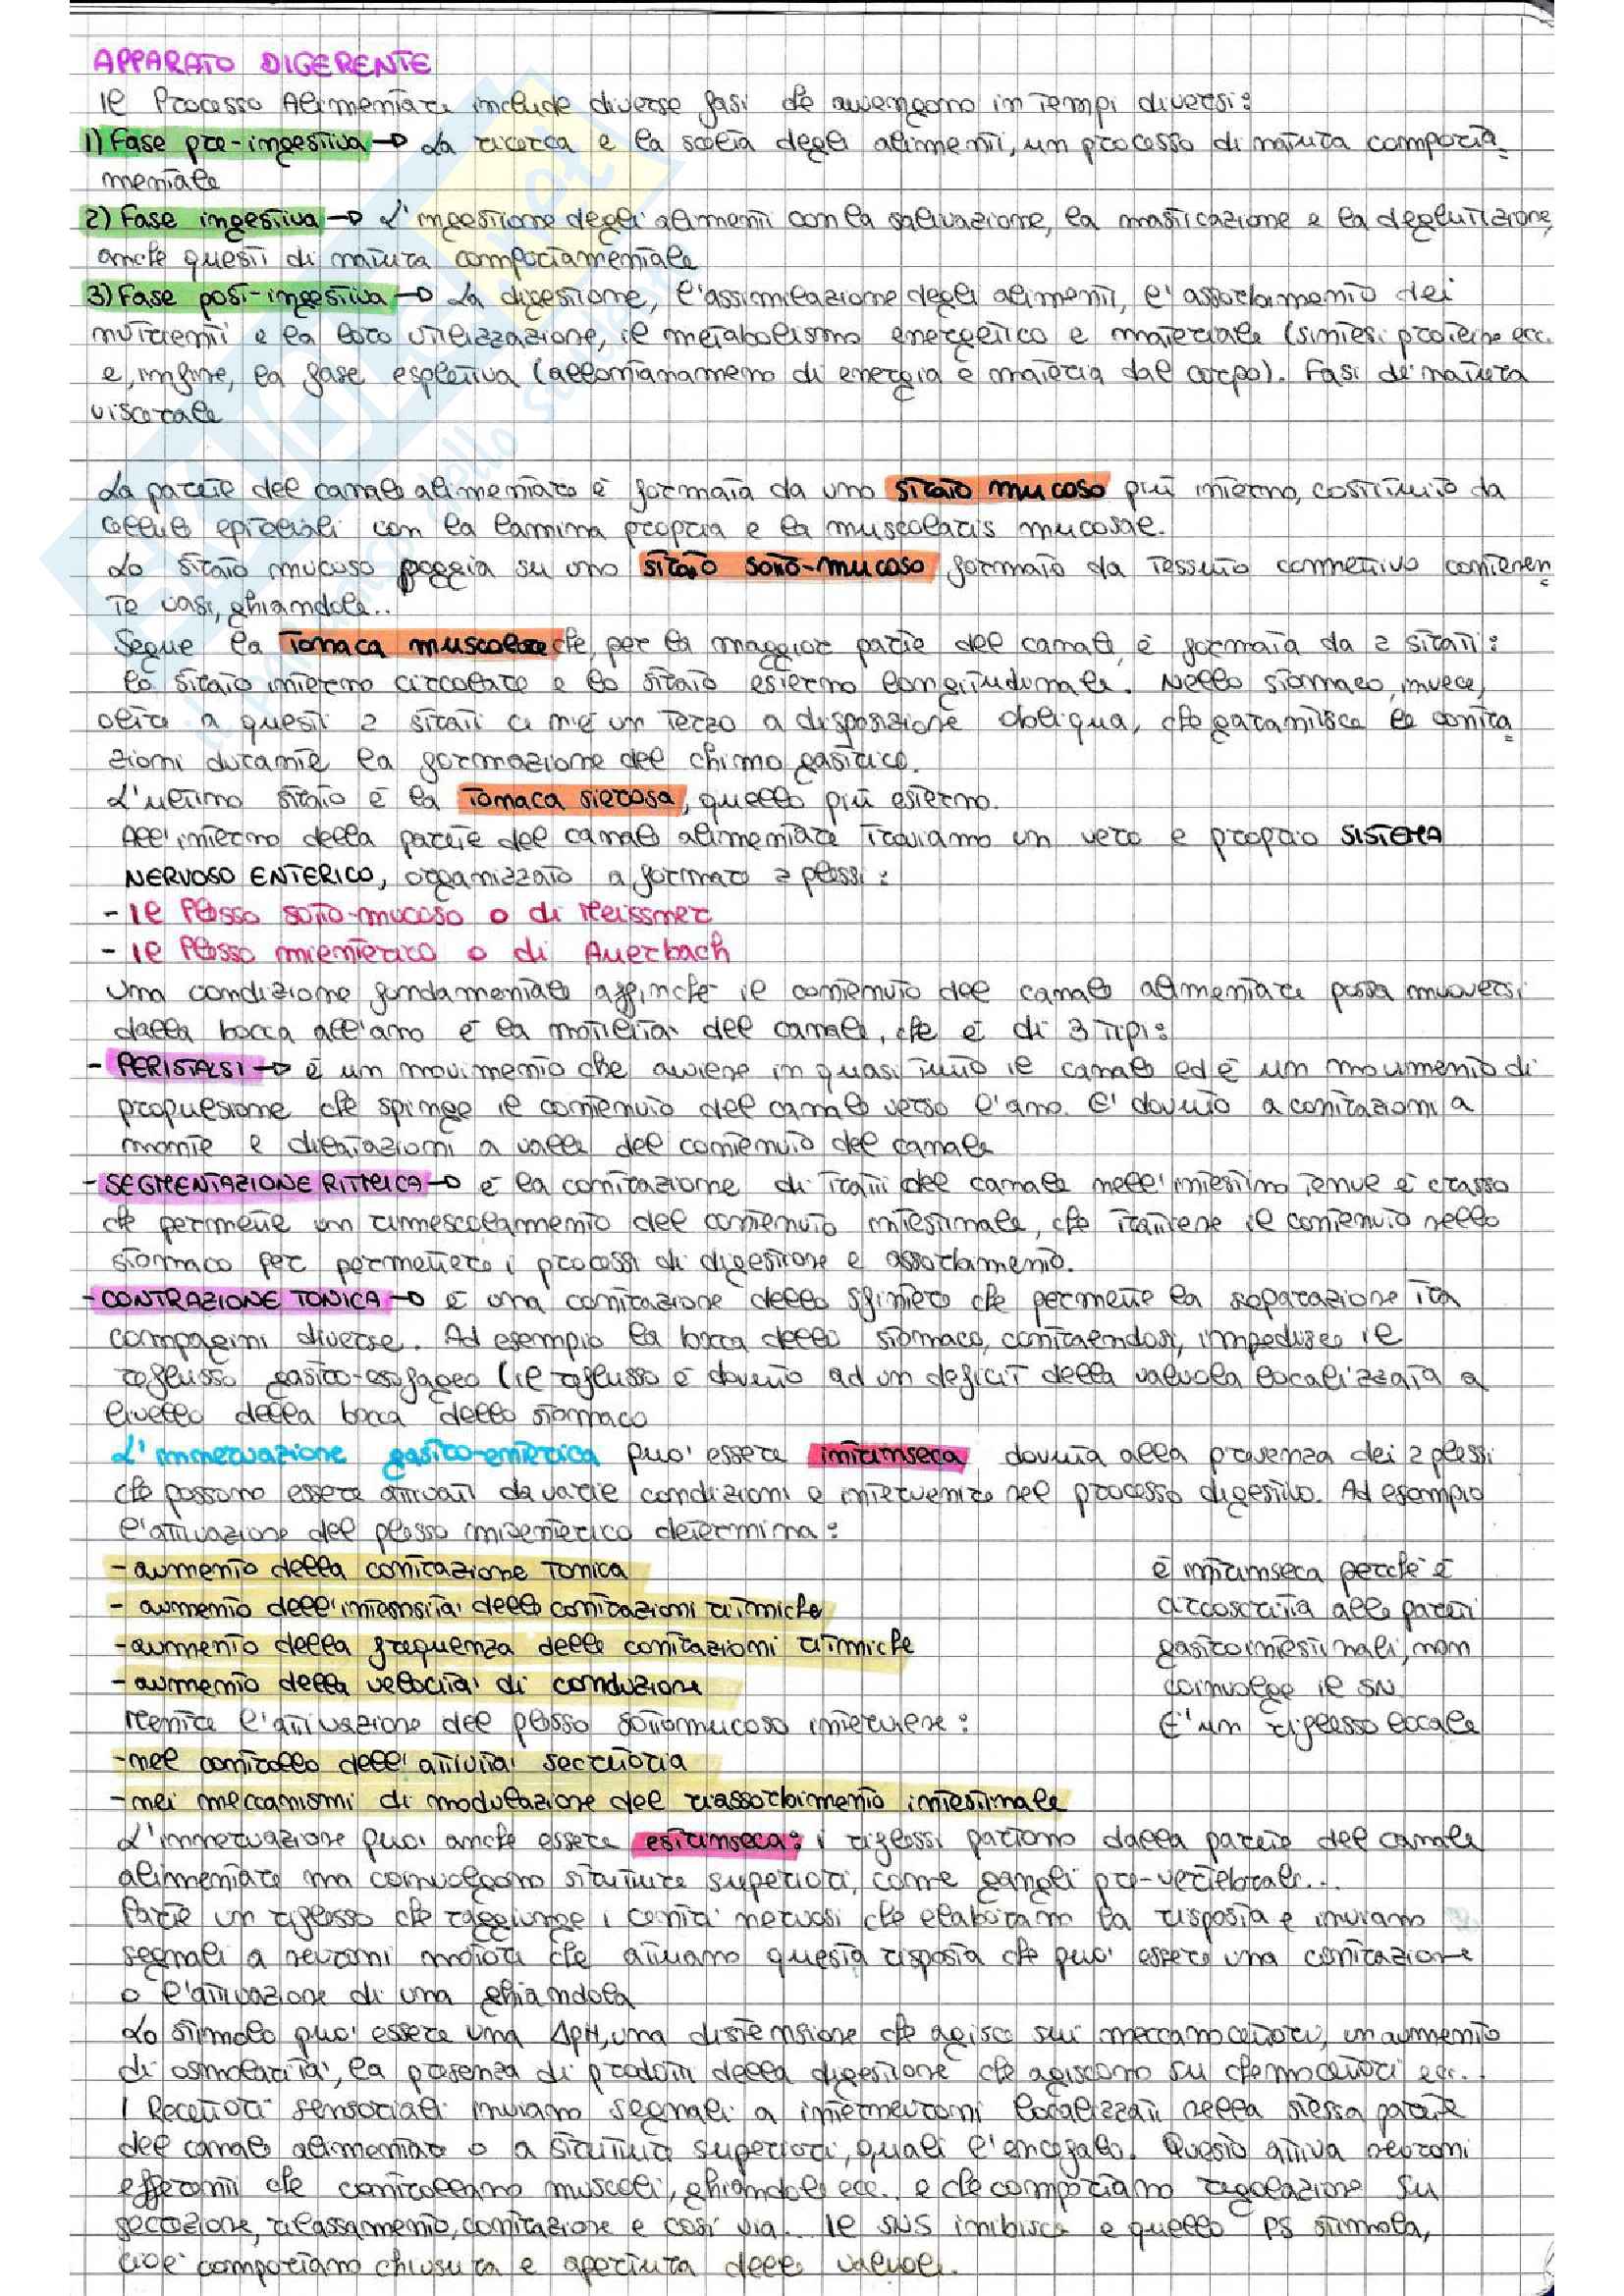 APPARATO DIGERENTE
Il Processo Alimentare include diverse fasi che avvengono in tempi diversi:
1) Fase pre-ingestiva → La ricerca e la scelta degli alimenti, un processo di natura comporta-
mentale
2) Fase ingestiva → L'ingestione degli alimenti con la salivazione, la masticazione e la deglutizione,
anche questi di natura comportamentale
3) Fase post-ingestiva → La digestione, l'assimilazione degli alimenti, l'assorbimento dei
nutrienti e la loro utilizzazione, il metabolismo energetico e materiale (sintesi proteine ecc.
e, infine, la fase espletiva (allontanamento di energia e materia dal corpo). Fasi di natura
viscerale
La parete del canale alimentare è formata da uno strato mucoso più interno, costituito da
cellule epiteliali con la lamina propria e la muscolaris mucosae.
Lo strato mucoso poggia su uno strato sotto-mucoso formato da tessuto connettivo contenen
te vasi, ghiandole..
Segue la Tonaca muscolare che, per la maggior parte del canale, è formata da 2 strati:
lo strato interno circolare e lo strato esterno longitudinale. Nello stomaco, invece,
oltre a questi 2 strati ce n'è un terzo a disposizione obliqua, che garantisce le contra
zioni durante la formazione del chimo gastrico.
L'ultimo strato è la Tonaca sierosa, quello più esterno.
All'interno della parete del canale alimentare troviamo un vero e proprio SISTEMA
NERVOSO ENTERICO, organizzato a formare 2 plessi:
- Il Plesso sotto-mucoso o di Meissner
- Il Plesso mienterico o di Auerbach
Una condizione fondamentale affinchè il contenuto del canale alimentare possa muoversi
dalla bocca all'ano è la motilità del canale, che è di 3 tipi:
- PERISTALSI → è un movimento che avviene in quasi tutto il canale ed è un movimento di
propulsione che spinge il contenuto del canale verso l'ano. E' dovuto a contrazioni a
monte e dilatazioni a valle del contenuto del canale
- SEGMENTAZIONE RITMICA → è la contrazione di tratti del canale nell'intestino tenue e crasso
che permette un rimescolamento del contenuto intestinale, che trattiene il contenuto nello
stomaco per permettere i processi di digestione e assorbimento.
- CONTRAZIONE TONICA → è una contrazione dello sfintere che permette la separazione tra
compagini diverse. Ad esempio la bocca dello stomaco, contraendosi, impedisce il
reflusso gastro-esofageo (il reflusso è dovuto ad un deficit della valvola localizzata a
livello della bocca dello stomaco
L'innervazione gastro-enterica puo' essere intrinseca, dovuta alla presenza dei 2 plessi
che possono essere attivati da varie condizioni e intervenire nel processo digestivo. Ad esempio
l'attivazione del plesso mienterico determina:
- aumento della contrazione tonica
- aumento dell'intensità delle contrazioni ritmiche
- aumento della frequenza delle contrazioni ritmiche
- aumento della velocità di conduzione
Mentre l'attivazione del plesso sottomucoso interviene:
- nel controllo dell'attività secretoria
- nei meccanismi di modulazione del riassorbimento intestinale
è intrinseca perchè è
circoscritta alle pareti
gastrointestinali, non
coinvolge il SN.
E' un riflesso locale
L'innervazione puo' anche essere estrinseca: i riflessi partono dalla parete del canale
alimentare ma coinvolgono strutture superiori, come gangli pre-vertebrali...
Parte un riflesso che raggiunge i centri nervosi che elaborano la risposta e inviano
segnali a neuroni motori che attivano questa risposta che puo' essere una contrazione
o l'attivazione di una ghiandola
Lo stimolo puo' essere una ΔpH, una distensione che agisce sui meccanocettori, un aumento
di osmolarità, la presenza di prodotti della digestione che agiscono su chemocettori ecc..
I Recettori sensoriali inviano segnali a interneuroni localizzati nella stessa parete
del canale alimentare o a strutture superiori, quali l'encefalo. Questo attiva neuroni
efferenti che controllano muscoli, ghiandole ecc.. e che comportano regolazione su
secrezione, rilassamento, contrazione e così via.. Il SNS inibisce e quello PS stimola,
cioè comportano chiusura e apertura delle valvole.